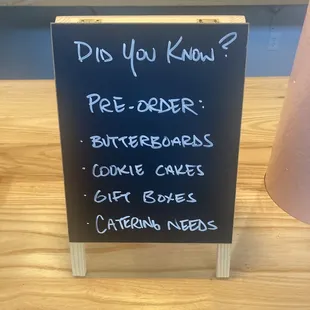 DID YOU KNOW?
PRE-ORDER:
· BUTTERBOARDS
· COOKIE CAKES
· GIFT BOXES
· CATERING NEEDS